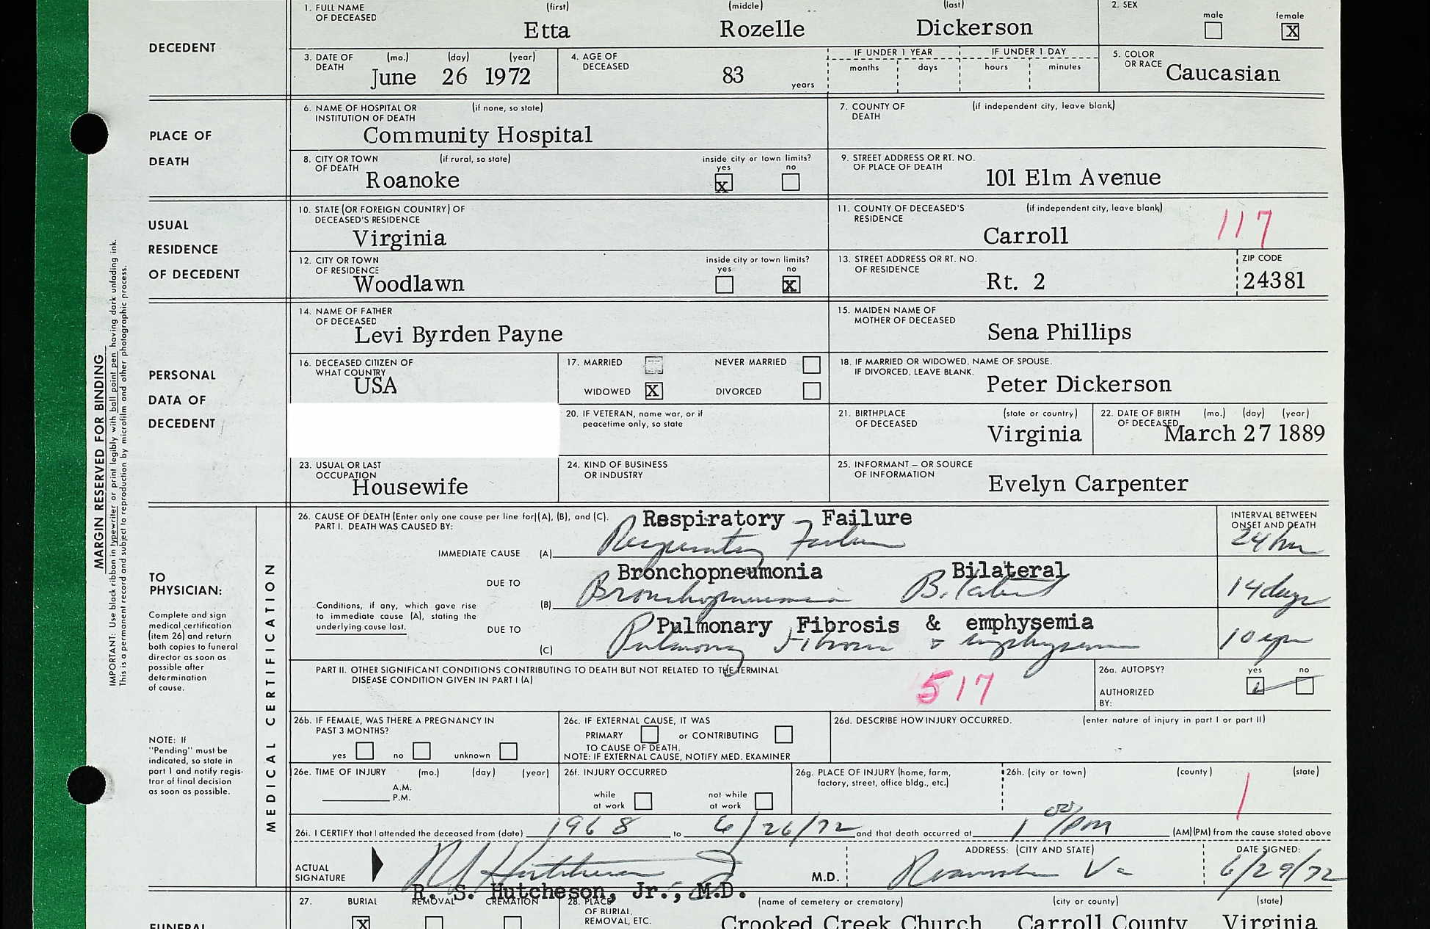 1. FULL NAME OF DECEASED (first) Etta (middle) Rozelle (last) Dickerson
2. SEX male ☐ female ☒
DECEDENT
3. DATE OF DEATH (mo.) (day) (year) June 26 1972
4. AGE OF DECEASED 83 years
IF UNDER 1 YEAR months days
IF UNDER 1 DAY hours minutes
5. COLOR OR RACE Caucasian
PLACE OF DEATH
6. NAME OF HOSPITAL OR INSTITUTION OF DEATH (if none, so state) Community Hospital
7. COUNTY OF DEATH (if independent city, leave blank)
8. CITY OR TOWN OF DEATH (if rural, so state) Roanoke
inside city or town limits? yes ☒ no ☐
9. STREET ADDRESS OR RT. NO. OF PLACE OF DEATH 101 Elm Avenue
USUAL RESIDENCE OF DECEDENT
10. STATE (OR FOREIGN COUNTRY) OF DECEASED'S RESIDENCE Virginia
11. COUNTY OF DECEASED'S RESIDENCE (if independent city, leave blank) Carroll 117
12. CITY OR TOWN OF RESIDENCE Woodlawn
inside city or town limits? yes ☐ no ☒
13. STREET ADDRESS OR RT. NO. OF RESIDENCE Rt. 2
ZIP CODE 24381
PERSONAL DATA OF DECEDENT
14. NAME OF FATHER OF DECEASED Levi Byrden Payne
15. MAIDEN NAME OF MOTHER OF DECEASED Sena Phillips
16. DECEASED CITIZEN OF WHAT COUNTRY USA
17. MARRIED ☐ NEVER MARRIED ☐
WIDOWED ☒ DIVORCED ☐
18. IF MARRIED OR WIDOWED, NAME OF SPOUSE. IF DIVORCED, LEAVE BLANK. Peter Dickerson
20. IF VETERAN, name war, or if peacetime only, so state
21. BIRTHPLACE OF DECEASED (state or country) Virginia
22. DATE OF BIRTH OF DECEASED (mo.) (day) (year) March 27 1889
23. USUAL OR LAST OCCUPATION Housewife
24. KIND OF BUSINESS OR INDUSTRY
25. INFORMANT – OR SOURCE OF INFORMATION Evelyn Carpenter
MARGIN RESERVED FOR BINDING
IMPORTANT: Use black ribbon in typewriter or print legibly with ball point pen having dark unfading ink.
This is a permanent record and subject to reproduction by microfilm and other photographic process.
MEDICAL CERTIFICATION
TO PHYSICIAN:
Complete and sign
medical certification
(item 26) and return
both copies to funeral
director as soon as
possible after
determination
of cause.
NOTE: If
"Pending" must be
indicated, so state in
part 1 and notify regis-
trar of final decision
as soon as possible.
26. CAUSE OF DEATH (Enter only one cause per line for (A), (B), and (C).
PART I. DEATH WAS CAUSED BY:
INTERVAL BETWEEN ONSET AND DEATH
Respiratory Failure
IMMEDIATE CAUSE (A) Respiratory Failure 24 hrs
Bronchopneumonia Bilateral
DUE TO (B) Bronchopneumonia Bilateral 14 days
Conditions, if any, which gave rise to immediate cause (A), stating the underlying cause last.
Pulmonary Fibrosis & emphysemia
DUE TO (C) Pulmonary Fibrosis & emphysema 10 yrs
PART II. OTHER SIGNIFICANT CONDITIONS CONTRIBUTING TO DEATH BUT NOT RELATED TO THE TERMINAL DISEASE CONDITION GIVEN IN PART I (A)
517
26a. AUTOPSY? yes ☐ no ☐
AUTHORIZED BY:
26b. IF FEMALE, WAS THERE A PREGNANCY IN PAST 3 MONTHS?
yes ☐ no ☐ unknown ☐
26c. IF EXTERNAL CAUSE, IT WAS
PRIMARY ☐ or CONTRIBUTING ☐
TO CAUSE OF DEATH.
NOTE: IF EXTERNAL CAUSE, NOTIFY MED. EXAMINER
26d. DESCRIBE HOW INJURY OCCURRED. (enter nature of injury in part I or part II)
26e. TIME OF INJURY (mo.) (day) (year)
A.M.
P.M.
26f. INJURY OCCURRED
while at work ☐ not while at work ☐
26g. PLACE OF INJURY (home, farm, factory, street, office bldg., etc.)
26h. (city or town) (county) (state)
26i. I CERTIFY that I attended the deceased from (date) 1968 to 6/26/72 and that death occurred at 1 00 pm (AM)(PM) from the cause stated above
ACTUAL SIGNATURE R S Hutcheson Jr M.D.
ADDRESS: (CITY AND STATE) Roanoke Va
DATE SIGNED: 6/29/72
R. S. Hutcheson, Jr., M.D.
FUNERAL
27. BURIAL ☒ REMOVAL ☐ CREMATION ☐
28. PLACE OF BURIAL, REMOVAL, ETC. (name of cemetery or crematory) (city or county) (state)
Crooked Creek Church Carroll County Virginia